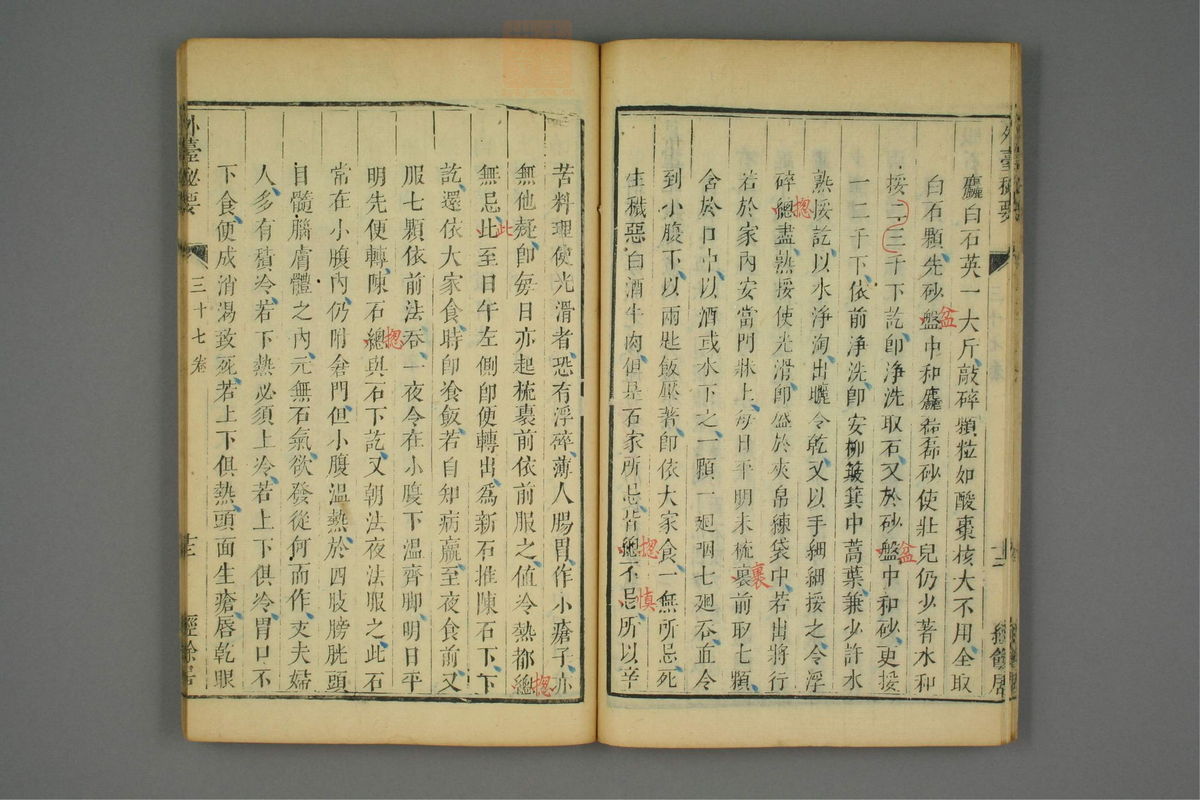 外臺秘要
麤白石英一大斤敲碎顆粒如酸棗核大不用全取
白石顆先砂盤中和麤砂使壯兒仍少著水和
盆
挼二三千下訖卽淨洗取石又於砂盤中和砂更挼
盆
一二千下依前淨洗卽安柳簸箕中蒿葉兼少許水
熟挼訖以水淨淘出曬令乾又以手細細挼之令浮
碎總盡熟挼使光滑卽盛於夾帛練袋中若出將行
揔
若於家內安當門牀上每日平明未梳裹前取七顆
裹
含於口中以酒或水下之一顆一廻咽七廻吞直令
到小腹下以兩匙飯壓著卽依大家食一無所忌死
生穢惡白酒牛肉但是石家所忌皆總不忌所以辛
揔
慎
十二
經餘居
苦料理使光滑者恐有浮碎薄人腸胃作小瘡子亦
無他疑卽每日亦起梳裹前依前服之値冷熱都總
揔
無忌此至日午左側卽便轉出爲新石推陳石下下
此
訖還依大家食時卽飡飯若自知病羸至夜食前又
服七顆依前法吞一夜令在小腹下溫齊腳明日平
明先便轉陳石總與石下訖又朝法夜法服之此石
揔
常在小腹內仍附倉門但小腹溫熱於四肢膀胱頭
目髓腦膚體之內元無石氣欲發從何而作夫夫婦
人多有積冷若下熱必須上冷若上下俱冷胃口不
下食便成消渴致死若上下俱熱頭面生瘡唇乾眼
外臺秘要
三十七卷
十三
經餘居